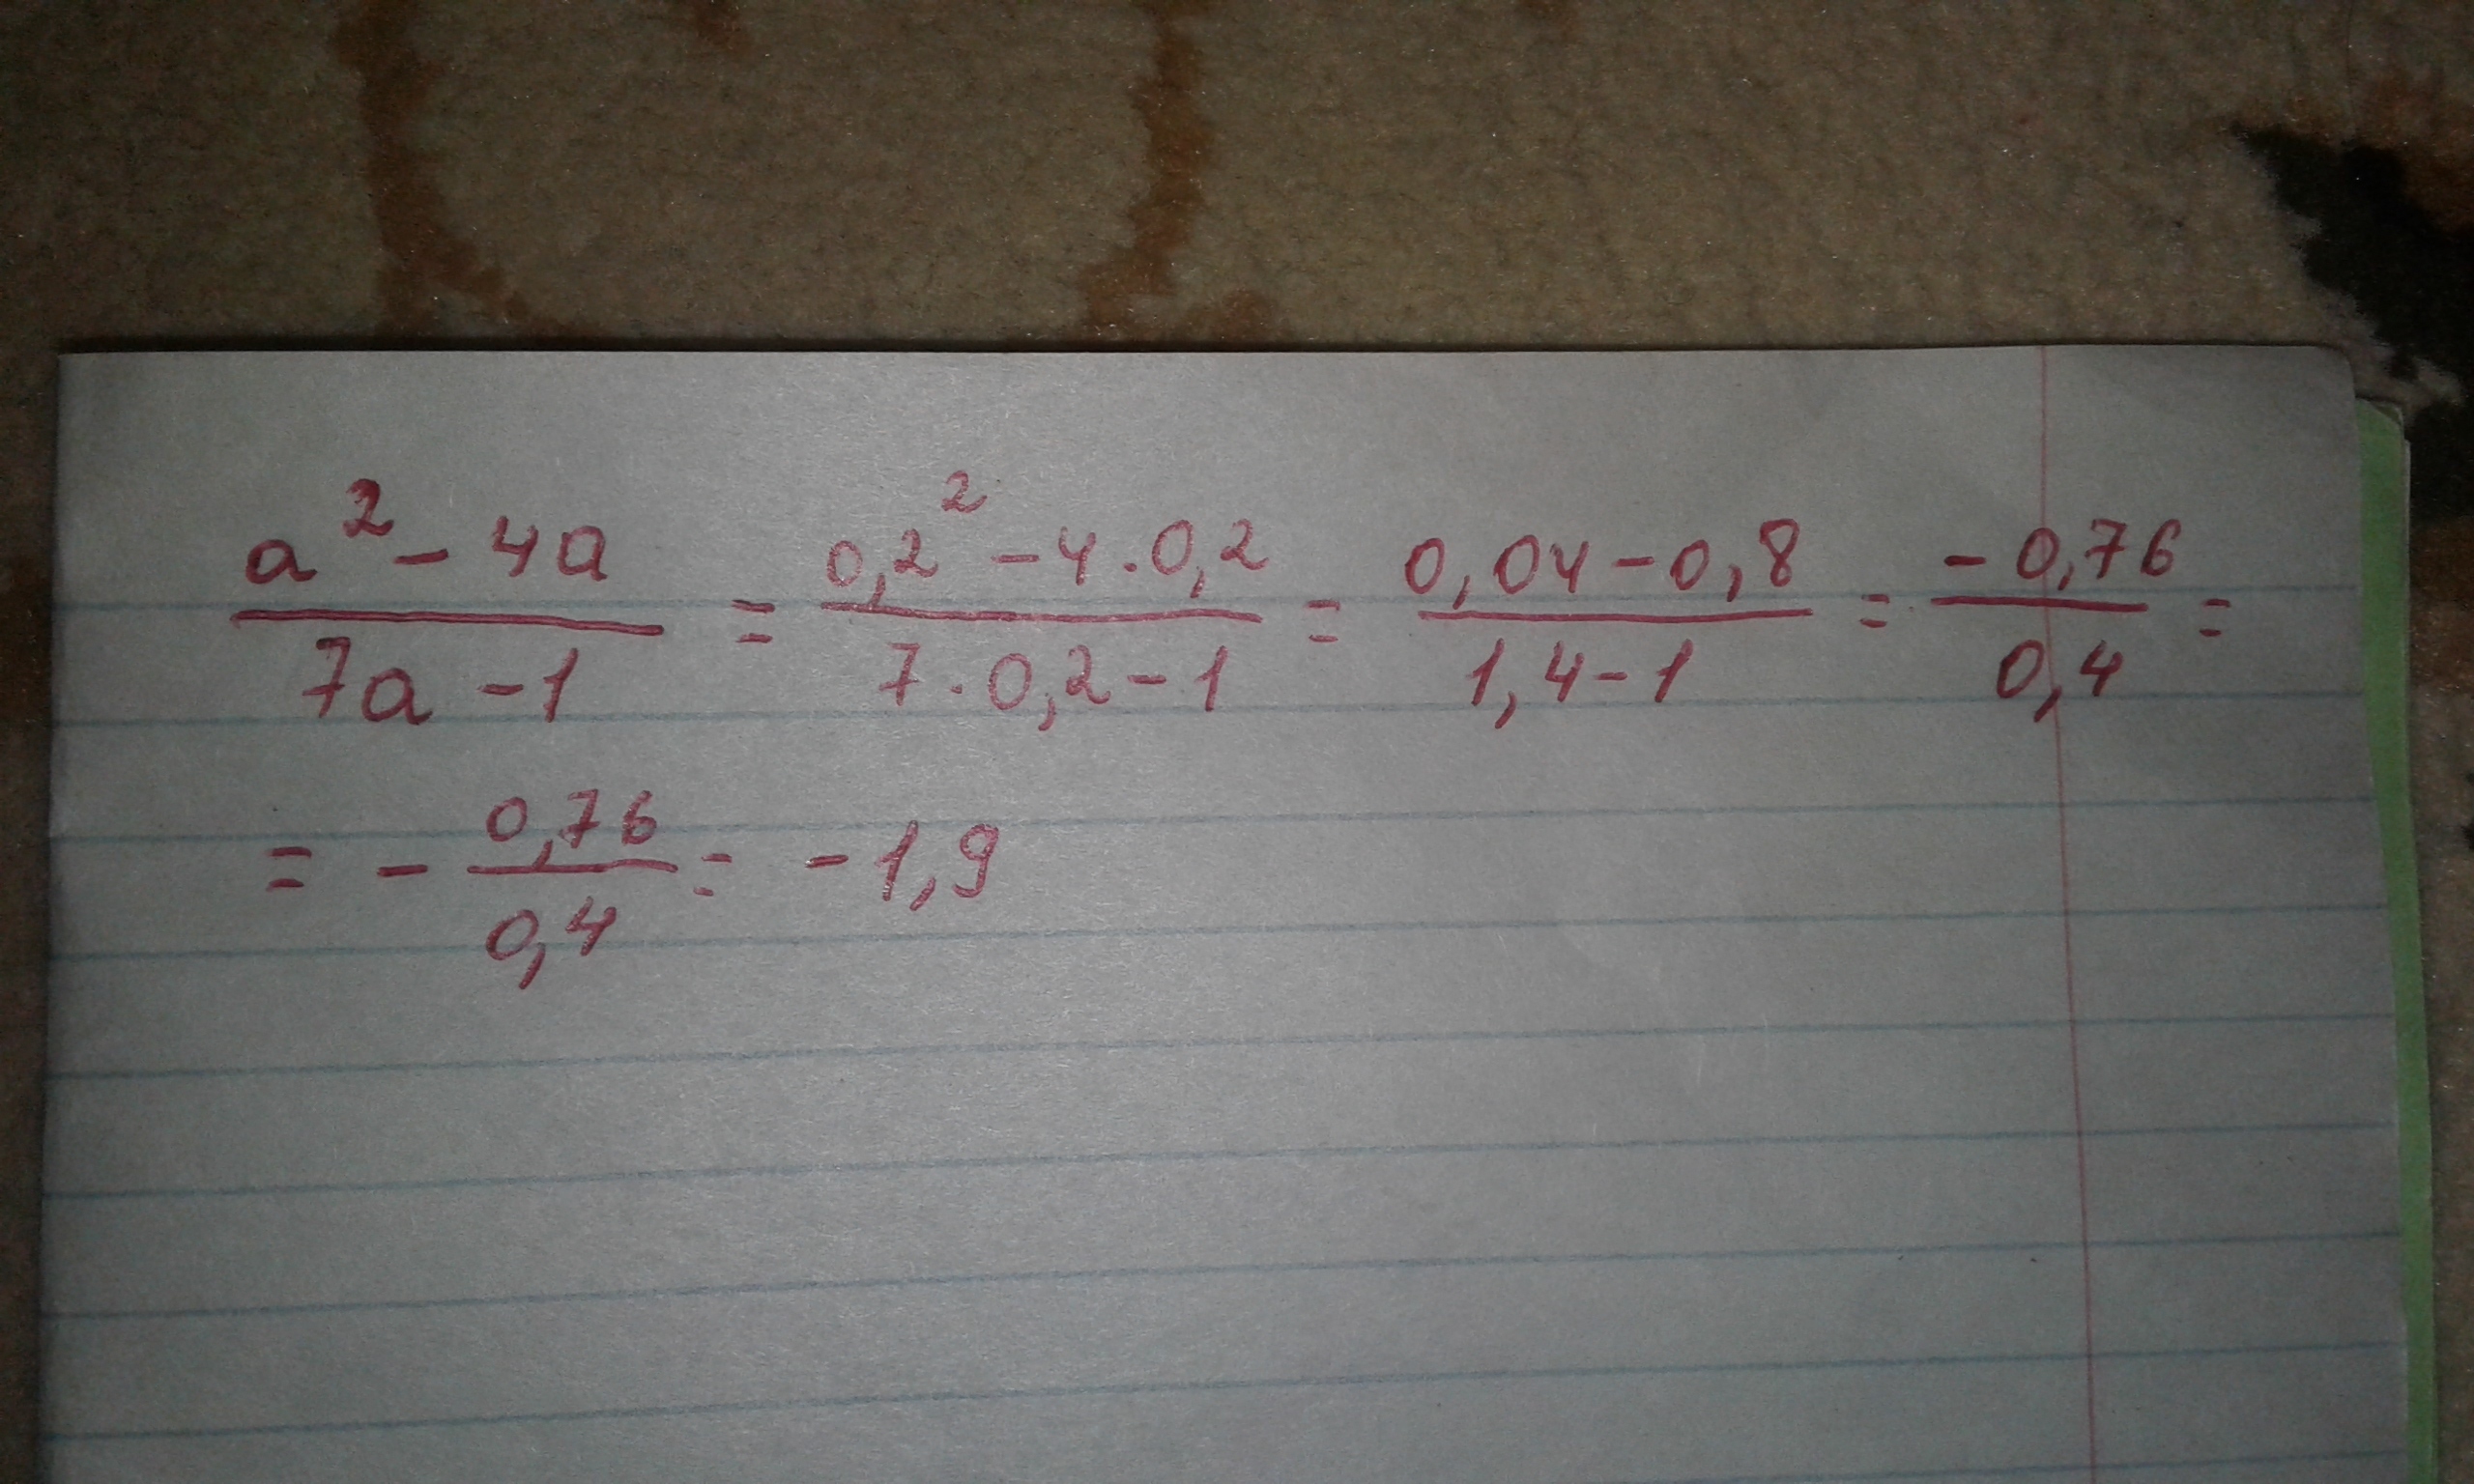 (a² - 4a)/(7a - 1) = (0,2² - 4 · 0,2)/(7 · 0,2 - 1) = (0,04 - 0,8)/(1,4 - 1) = (-0,76)/(0,4) =
= - (0,76)/(0,4) = - 1,9